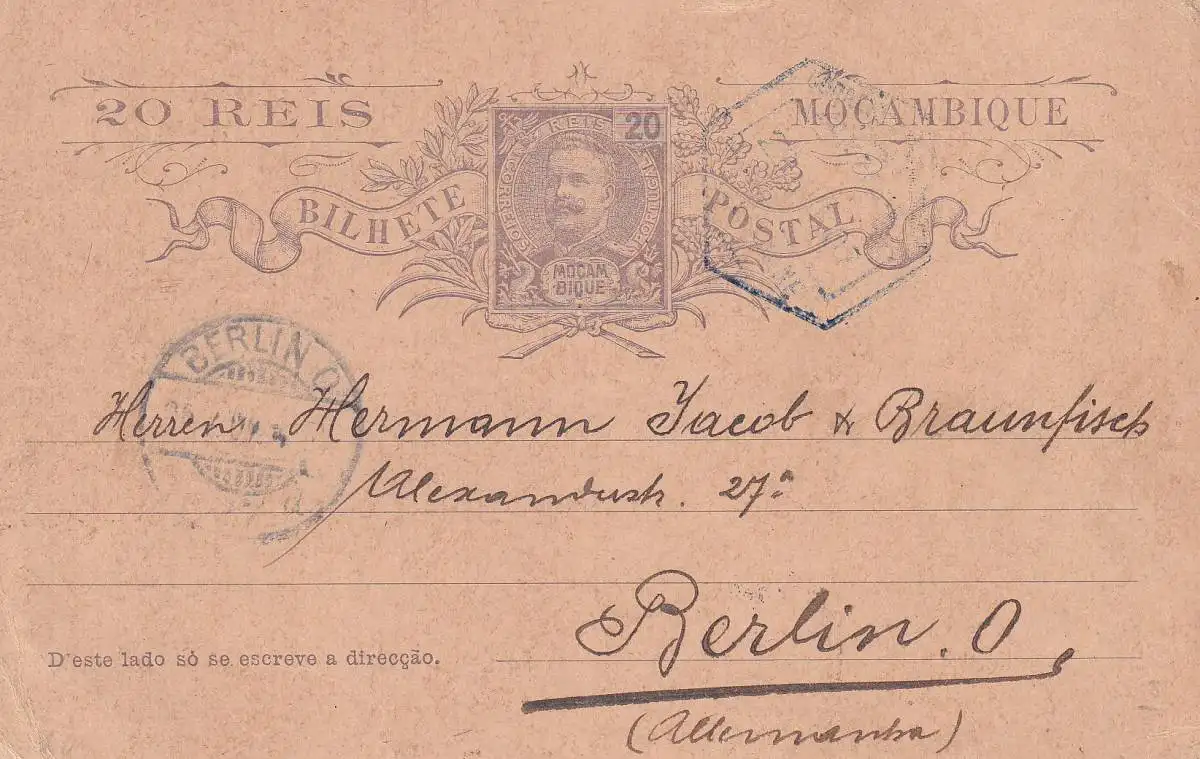 20 REIS
MOÇAMBIQUE
REIS 20
CORREIOS PORTUGAL
BILHETE POSTAL
MOÇAM
BIQUE
BERLIN O
Herren Hermann Jacob & Braunfisch
Alexanderstr. 27a
Berlin. O
D'este lado só se escreve a direcção.
(Allemanha)